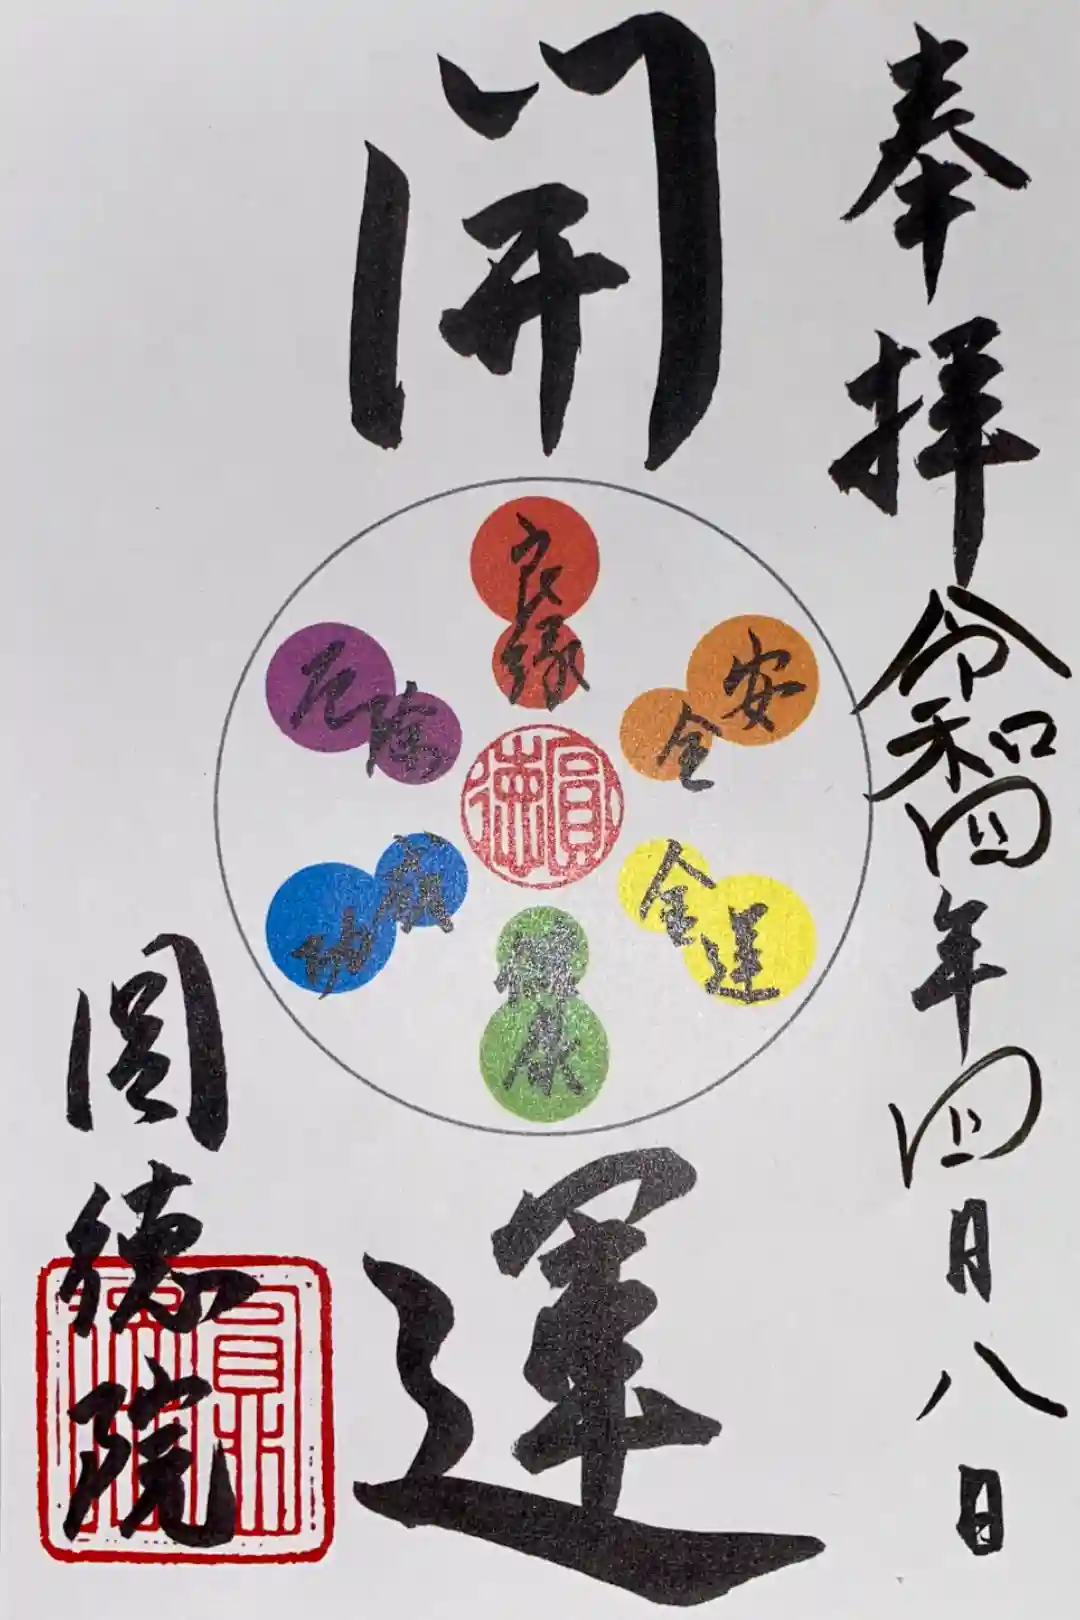 奉拝
令和四年四月八日
開運
良縁
安全
金運
健康
成功
厄除
圓徳
圓徳院